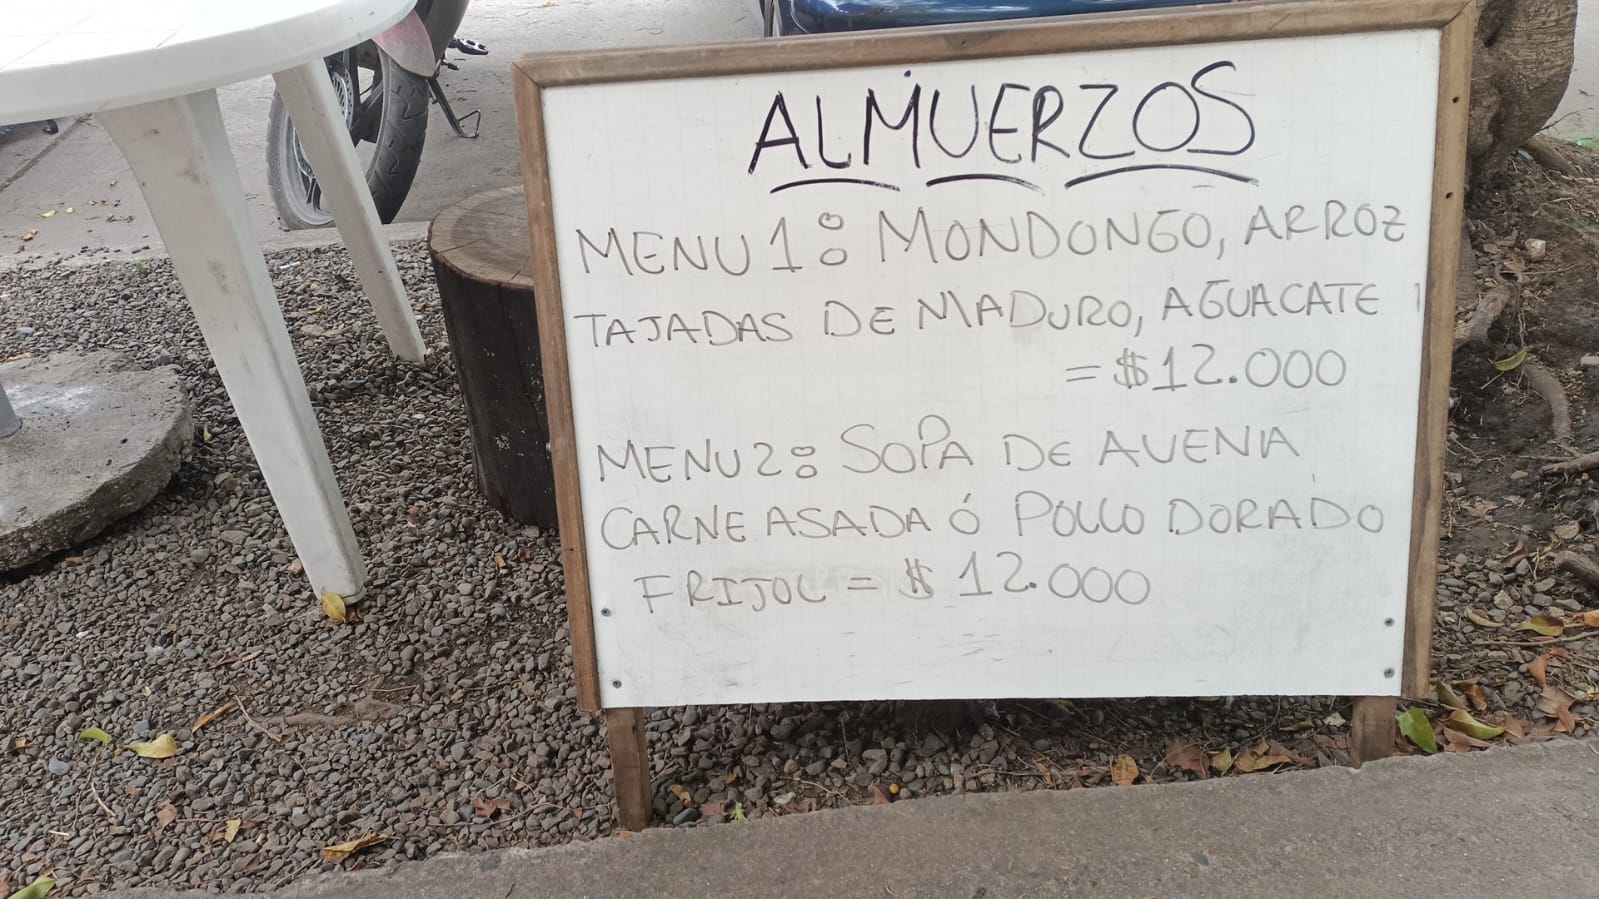 ALMUERZOS
MENU 1: MONDONGO, ARROZ
TAJADAS DE MADURO, AGUACATE
= $12.000
MENU 2: SOPA DE AVENA,
CARNE ASADA Ó POLLO DORADO
FRIJOL = $12.000